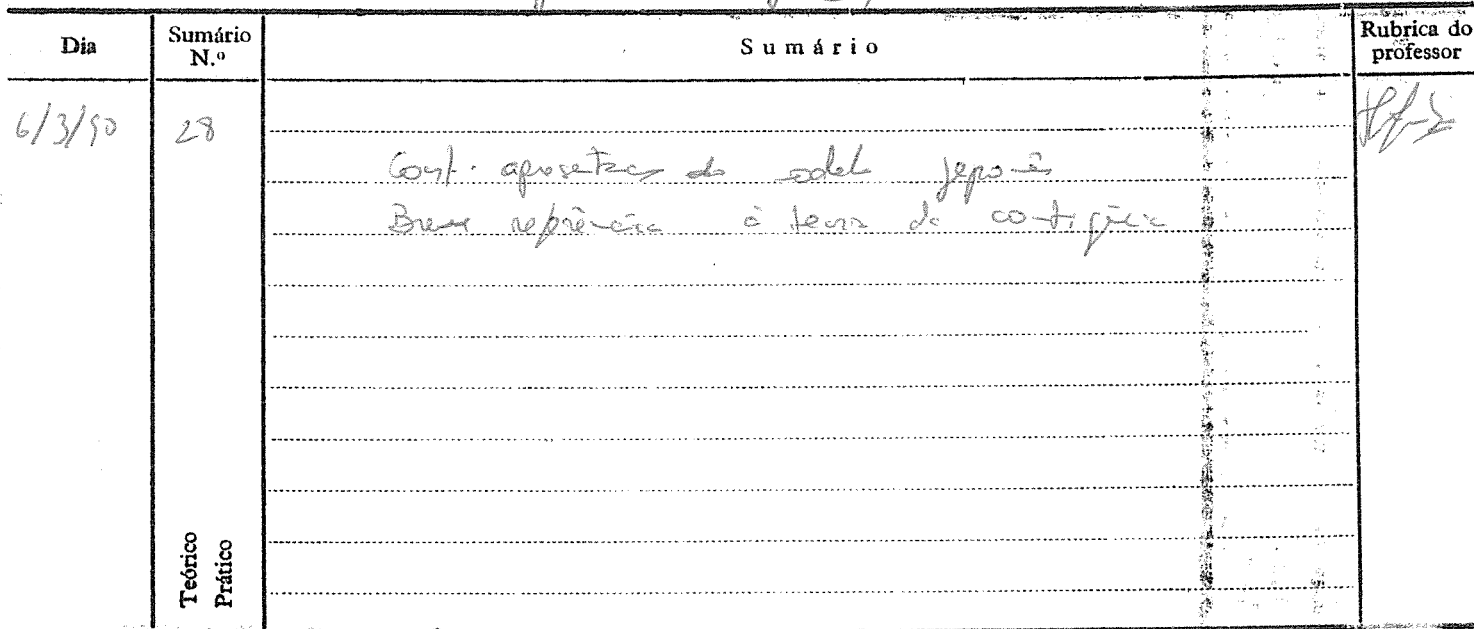 Dia
Sumário N.º
Sumário
Rubrica do professor
6/3/90
28
Cont. apresentação do modelo japonês
Breve referência à teoria da contigência
Teórico
Prático